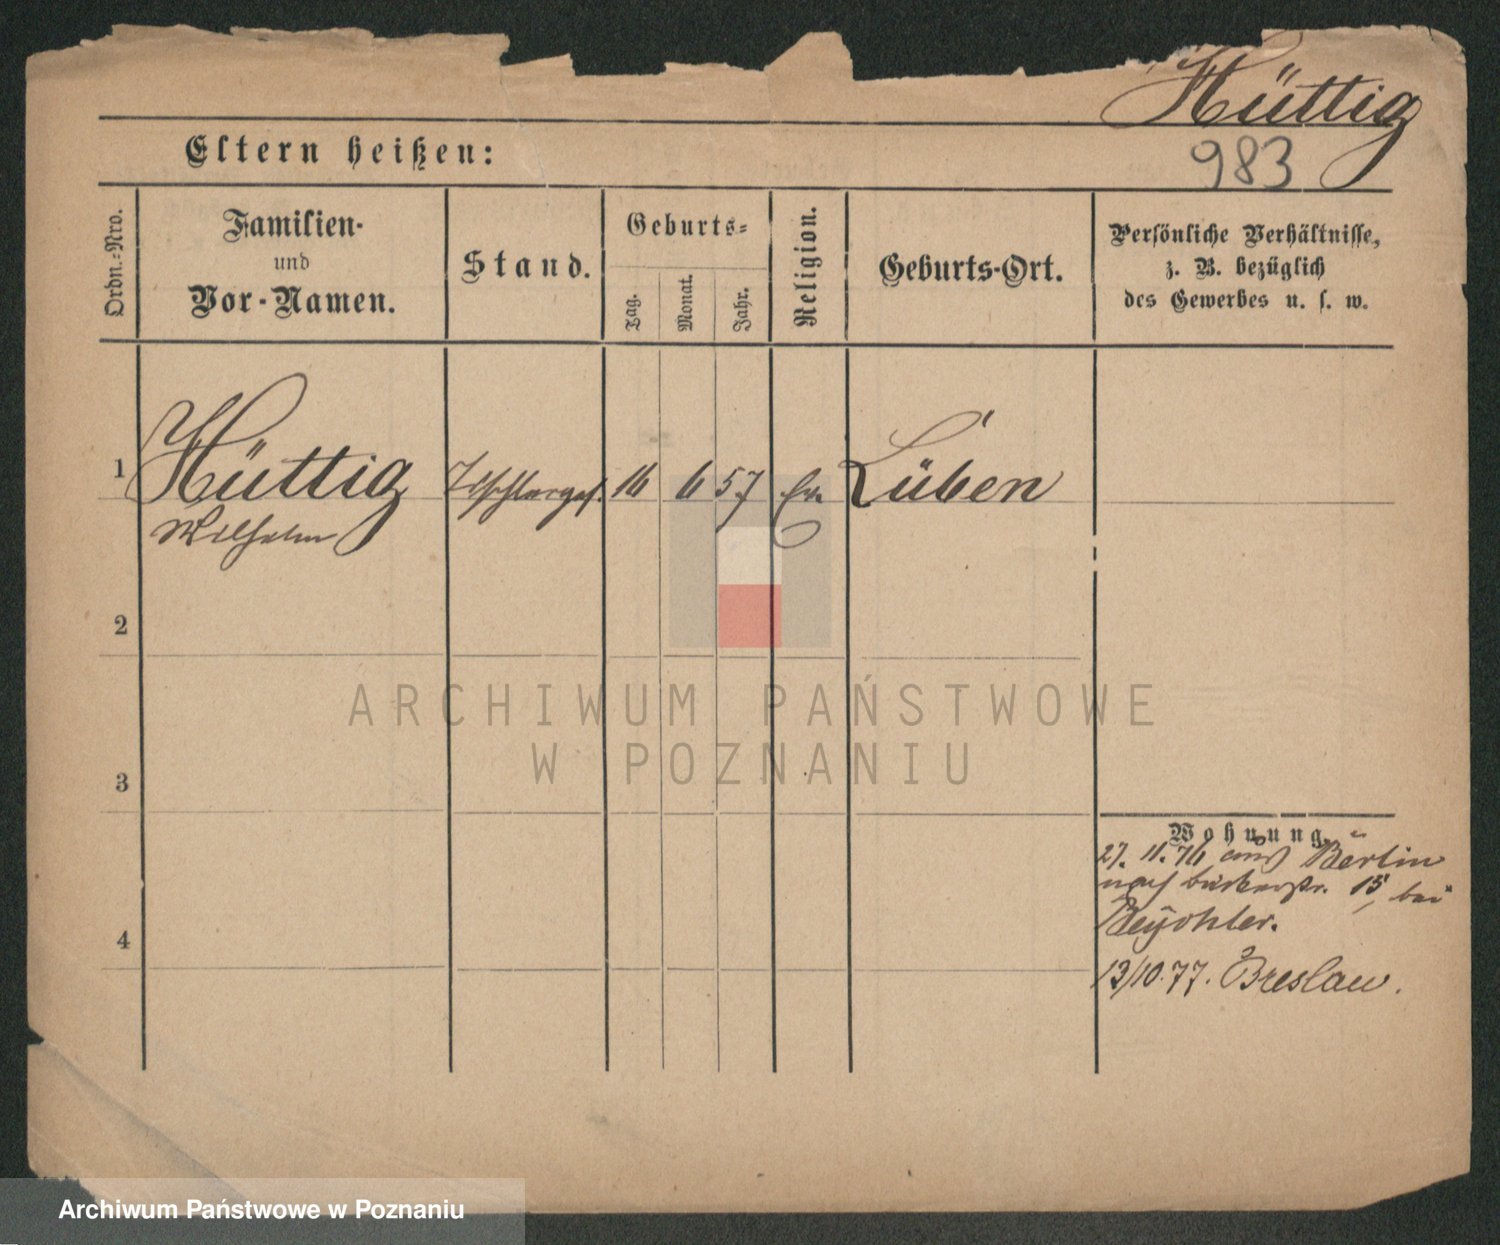 Hüttig
983
Eltern heißen:
Ordn.-Nro.
Familien-
und
Vor-Namen.
Stand.
Geburts-
Tag.
Monat.
Jahr.
Religion.
Geburts-Ort.
Persönliche Verhältnisse,
z. B. bezüglich
des Gewerbes u. s. w.
1
Hüttig Tischlerges. 16 6 57 Ev. Lüben
Wilhelm
2
3
4
ARCHIWUM PAŃSTWOWE
W POZNANIU
Wohnung.
27. 11. 76 aus Berlin
nach 15, bei
13/10.77. Breslau.
Archiwum Państwowe w Poznaniu